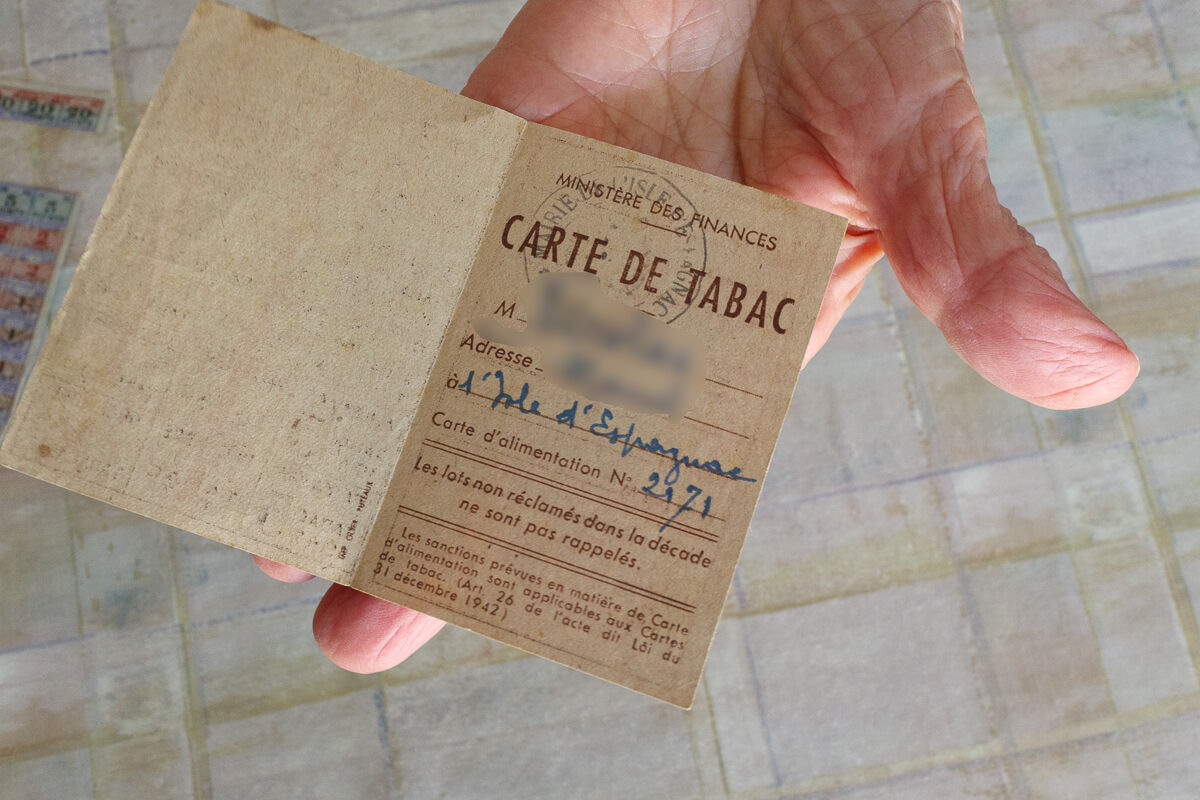 MINISTÈRE DES FINANCES
CARTE DE TABAC
M
Adresse
à l'Isle d'Espagnac
Carte d'alimentation N° 2171
Les lots non réclamés dans la décade
ne sont pas rappelés.
Les sanctions prévues en matière de Carte
d'alimentation sont applicables aux Cartes
de tabac. (Art. 26 de l'acte dit Lôi du
31 décembre 1942)
20 20
5 5